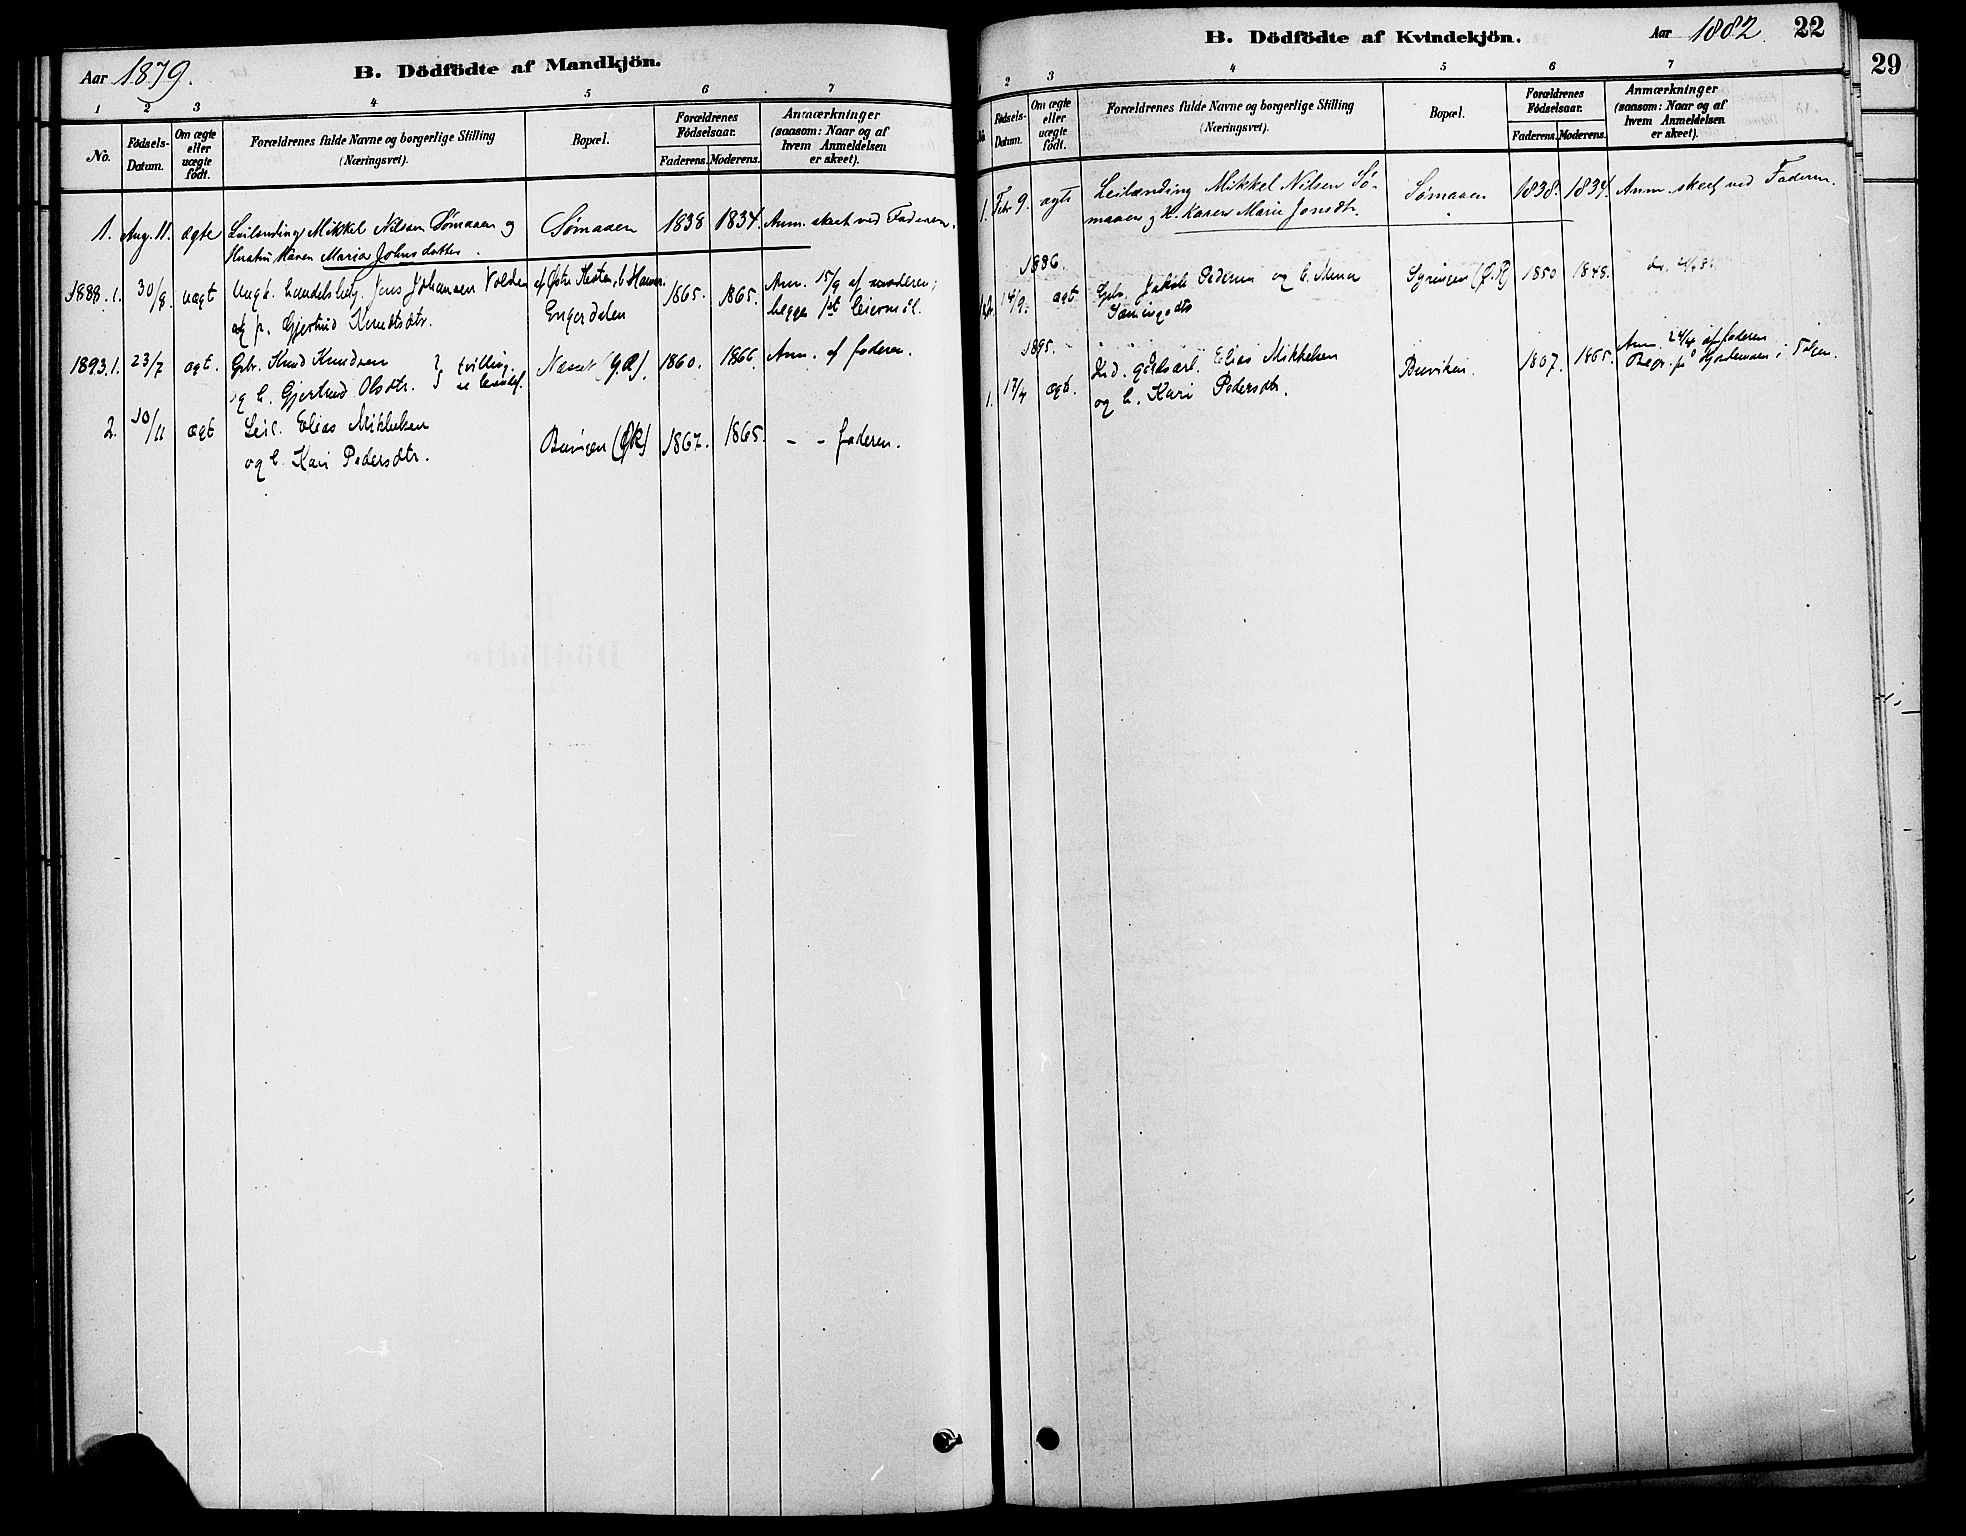 Aar 1879.
B. Dödfödte af Mandkjön.
1 2 3 4 5 6 7
No.
Födsels-Datum.
Om ægte eller uægte födt.
Forældrenes fulde Navne og borgerlige Stilling (Næringsvei).
Bopæl.
Forældrenes Födselsaar.
Faderens. Moderens.
Anmærkninger (saasom: Naar og af hvem Anmeldelsen er skeet).
1. Aug. 11. ægte Leilending Mikkel Nilsen Sømaaen og Sømaaen 1838 1834. Anm. skeet ved Faderen.
Hustru Karen Maria Johnsdatter.
1888. 1. 30/8 uægt Ungk. Jens Johansen Volden af 1865. 1865. Anm. 15/9 af moderen;
og p. Gjertrud Knudsdtr. Engerdalen begges 1st leiermål.
1893. 1. 23/7 ægt. Gbr. Knud Knudsen tvilling 1860. 1866. Anm. af faderen.
og h. Gjertrud Olsdtr.
2. 30/11 ægt Leil. Elias Mikkelsen
og h. Kari Pedersdtr. 1867. 1865. - - faderen.
B. Dödfödte af Kvindekjön.
Aar 1882. 22
29
2 3 4 5 6 7
No.
Födsels-Datum.
Om ægte eller uægte födt.
Forældrenes fulde Navne og borgerlige Stilling (Næringsvei).
Bopæl.
Forældrenes Födselsaar.
Faderens. Moderens.
Anmærkninger (saasom: Naar og af hvem Anmeldelsen er skeet).
1. Febr 9. ægte Leilænding Mikkel Nilsen Sø- Sømaaen 1838. 1834. Anm. skeet ved Faderen.
maaen og H. Karen Marie Jonsdtr.
1886.
14/9. ægt. Gbr. Jakob Pedersen og h. 1850 1848.
1895.
1. 17/4 ægt. gårdsarb. Elias Mikkelsen 1867. 1865. Anm. 24/4 af faderen
og h. Kari Pedersdtr. i Tolgen.